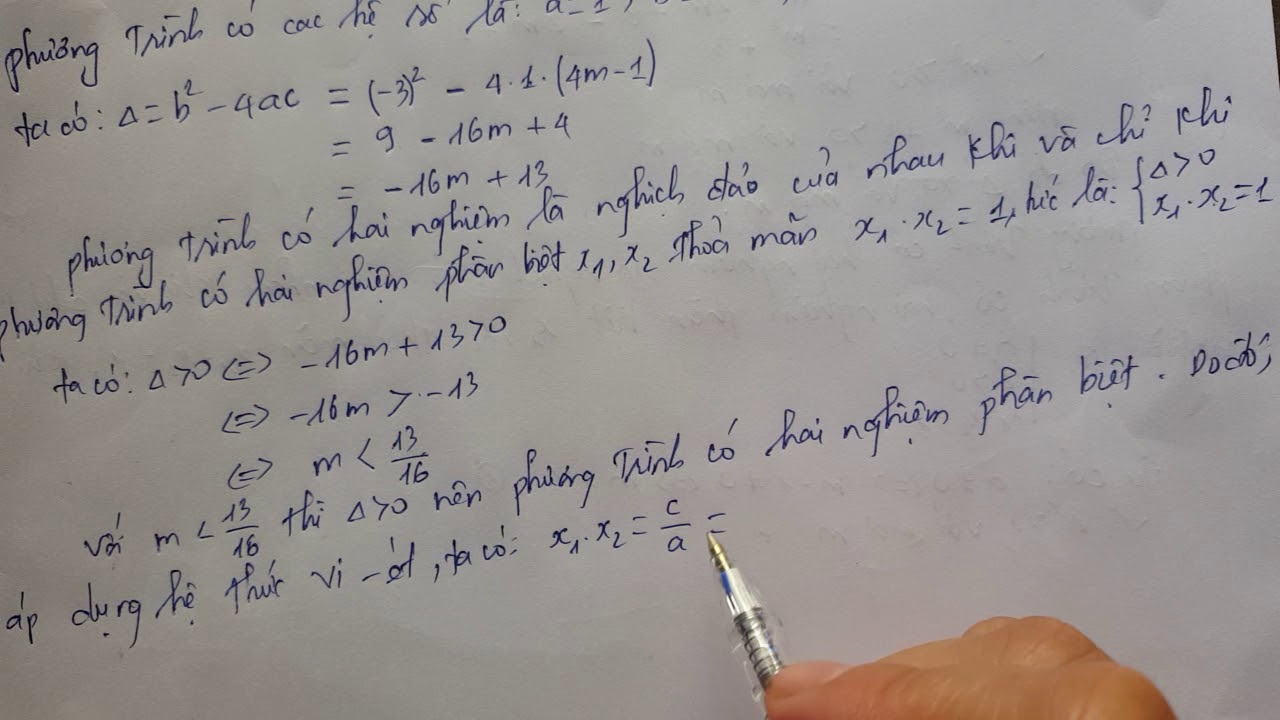 phương Trình có các hệ số là: a=1,
ta có: Δ = b² - 4ac = (-3)² - 4·1·(4m-1)
= 9 - 16m + 4
= -16m + 13
phương Trình có hai nghiệm là nghịch đảo của nhau khi và chỉ khi
phương Trình có hai nghiệm phân biệt x₁, x₂ Thoả mãn x₁·x₂ = 1, tức là: { Δ>0
x₁·x₂=1
ta có: Δ>0 <=> -16m + 13>0
<=> -16m > -13
<=> m < 13/16
với m < 13/16 thì Δ>0 nên phương Trình có hai nghiệm phân biệt. Do đó,
áp dụng hệ thức vi-ét, ta có: x₁·x₂ = c/a =